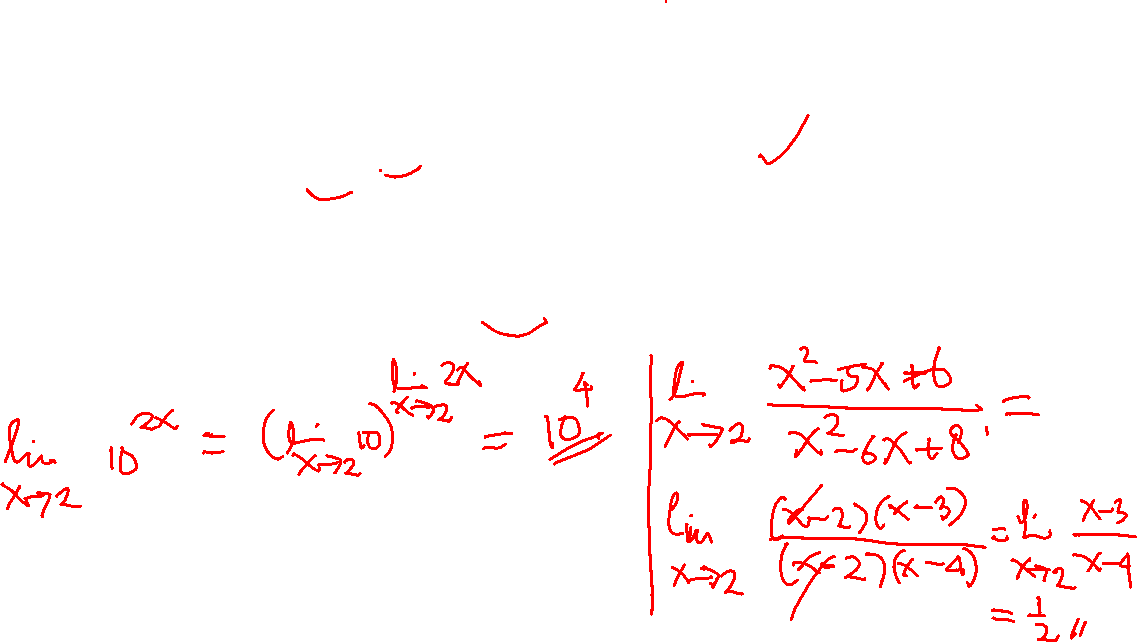 lim x→2 10^{2x} = (lim x→2 10)^{lim x→2 2x} = 10^4
lim x→2 (x^2-5x+6)/(x^2-6x+8) =
lim x→2 ((x-2)(x-3))/((x-2)(x-4)) = lim x→2 (x-3)/(x-4)
= 1/2 //